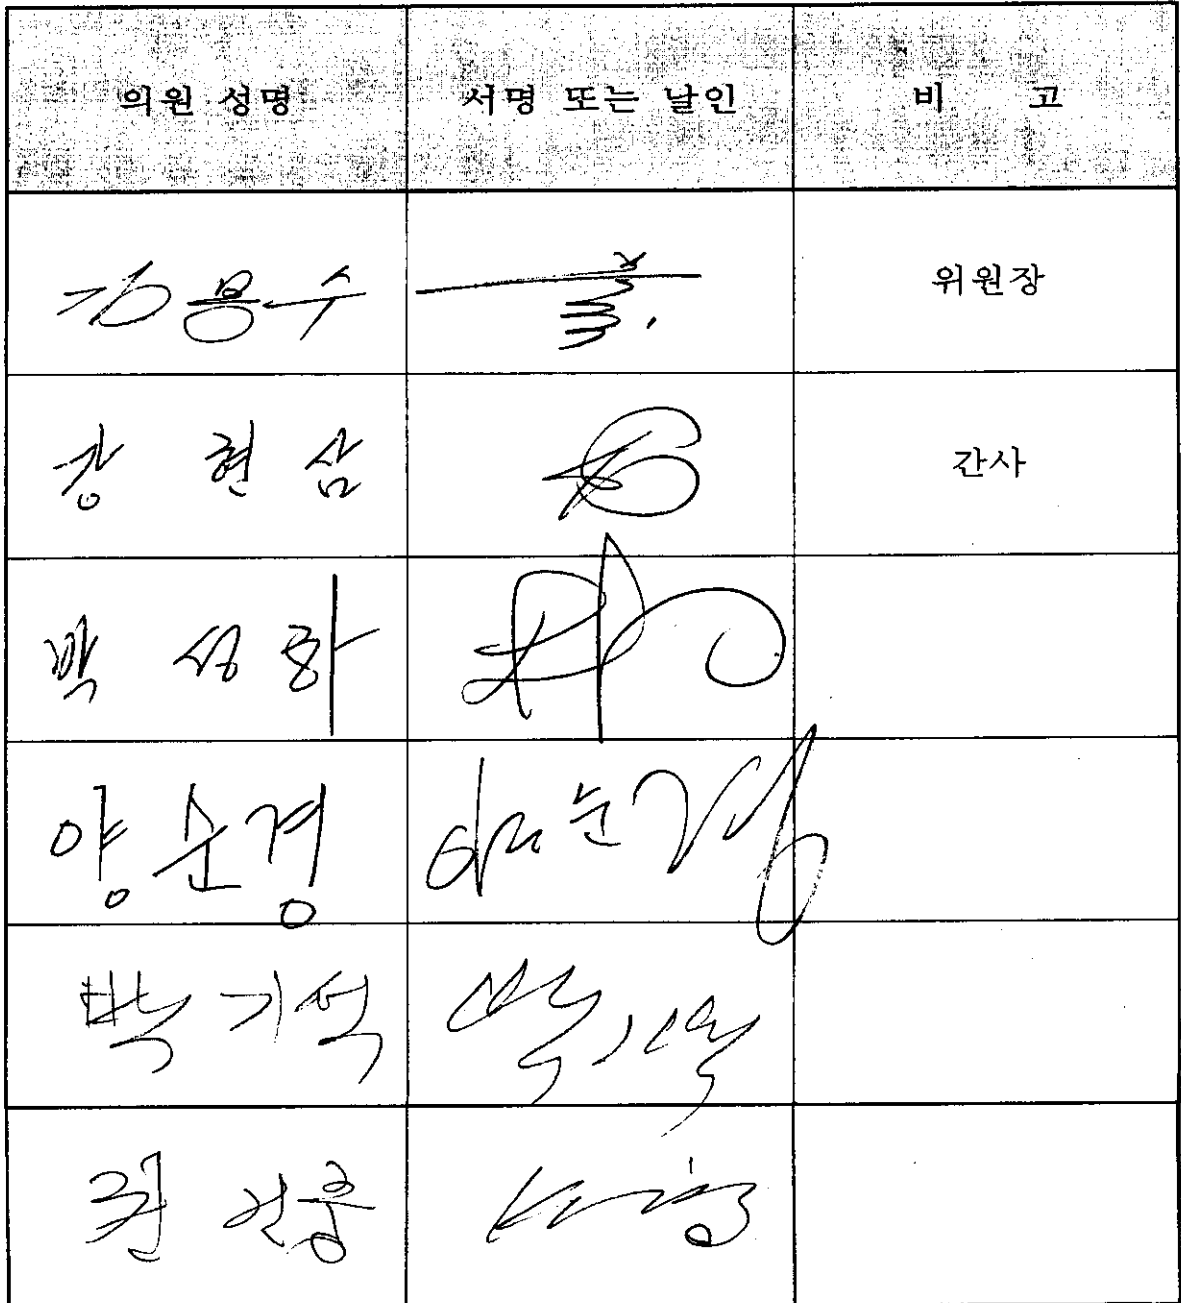 의원 성명 서명 또는 날인 비 고
김용수 위원장
강 현 삼 간사
박 성 하
양순경 양순경
박기석 박기석